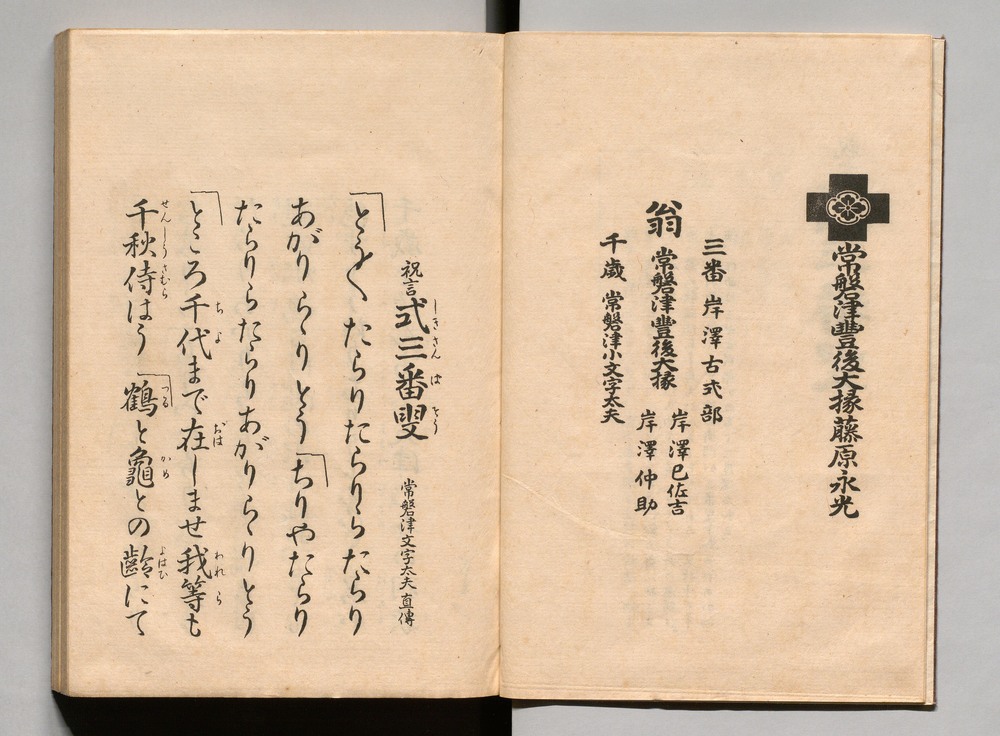 常磐津豐後大掾藤原永光
三番 岸澤古式部
翁 常磐津豐後大掾 岸澤巳佐吉
岸澤仲助
千歳 常磐津小文字太夫
祝言 式三番叟 常磐津文字太夫直傳
しきさんばそう
とう〳〵たらりたらりらたらり
あがりらゝりとう ちりやたらり
たらりらたらりあがりらゝりとう
ところ千代まで在しませ我等も
ちよ おは われら
千秋侍はう 鶴と龜との齡にて
せんしうさむら つる かめ よはひ